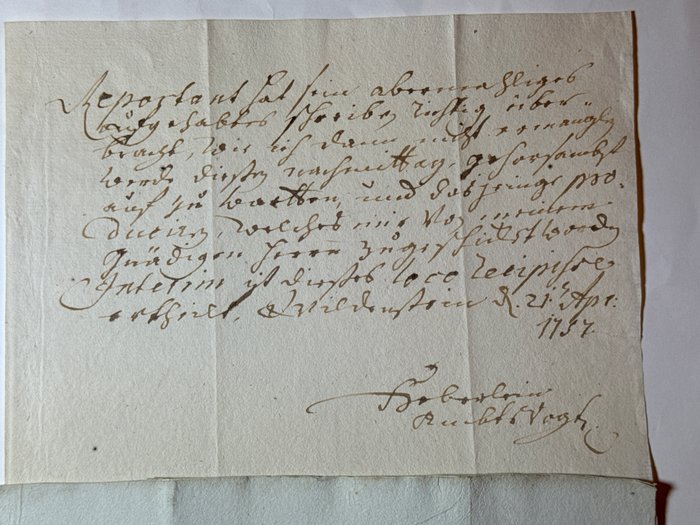 Reportant hat sein abermahliges
aufgehabtes schreiben richtig über-
bracht, wie ich dann nicht ermanglen
werde diesen nachmittag gehorsambst
auf zu wartten, und dasjenige pro-
duciren, welches mir von meinem
gnädigen Herrn zugeschickt worden
Interim ist dieses loco recipisse
ertheilt, Wildenstein d. 21. Apr:
1757.
Heberlein
Ambts Vogt.